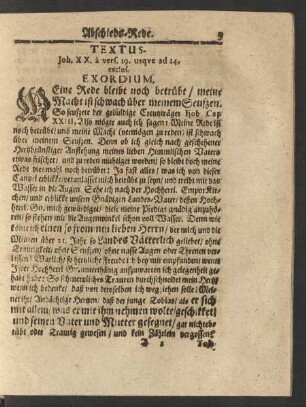 Abschieds-Rede. 3
TEXTUS.
Joh. XX. à vers. 19. usqve ad 24.
exclus.
EXORDIUM.
MEine Rede bleibt noch betrübt / meine
Macht ist schwach über meinem Seufzen.
So seufzete der gedültige Creutzträger Hjob Cap
XXIII. Also möge auch ich sagen: Meine Rede ist
noch betrübt / und meine Macht (vermögen zu reden) ist schwach
über meinem Seufzen. Denn ob ich gleich nach geschehener
Hertzbrünstiger Anflehung meines lieben Himmlischen Vaters
etwas frischer / und zu reden muhtiger worden / so bleibt doch meine
Rede viermahl noch betrübt: Ja fast alles / was ich von dieser
Cantzel erblicke veranlasset mich betrübt zu seyn / und treibt mir das
Wasser in die Augen. Sehe ich nach der Hochherrl. Empor Kir-
chen / und erblicke unsern Gnädigen Landes-Vater / dessen Hoch-
herrl. Gn. mich gewürdiget / diese meine Predigt gnädig anzuhö-
ren / so stehen mir die Augenwinckel schon voll Wasser. Denn wie
könte ich einen so frommen lieben Herrn / der mich und die
Meinen über 21. Jahr so Landes Väterlich geliebet / ohne
Traurigkeit oder Seufzen / ohne nasse Augen oder Thränen ver-
lassen? Warlich / so herzliche Freude ich bey mir empfunden / wenn
ich bedencke / daß
ner ihr Andächtige Hertzen / daß der junge Tobias / als er sich
mit allem / was er mit ihm nehmen wolte / geschickt /
und seinen Vater und Mutter gesegnet / gar nicht be-
trübt oder Traurig gewesen / und kein Zährlein vergossen?